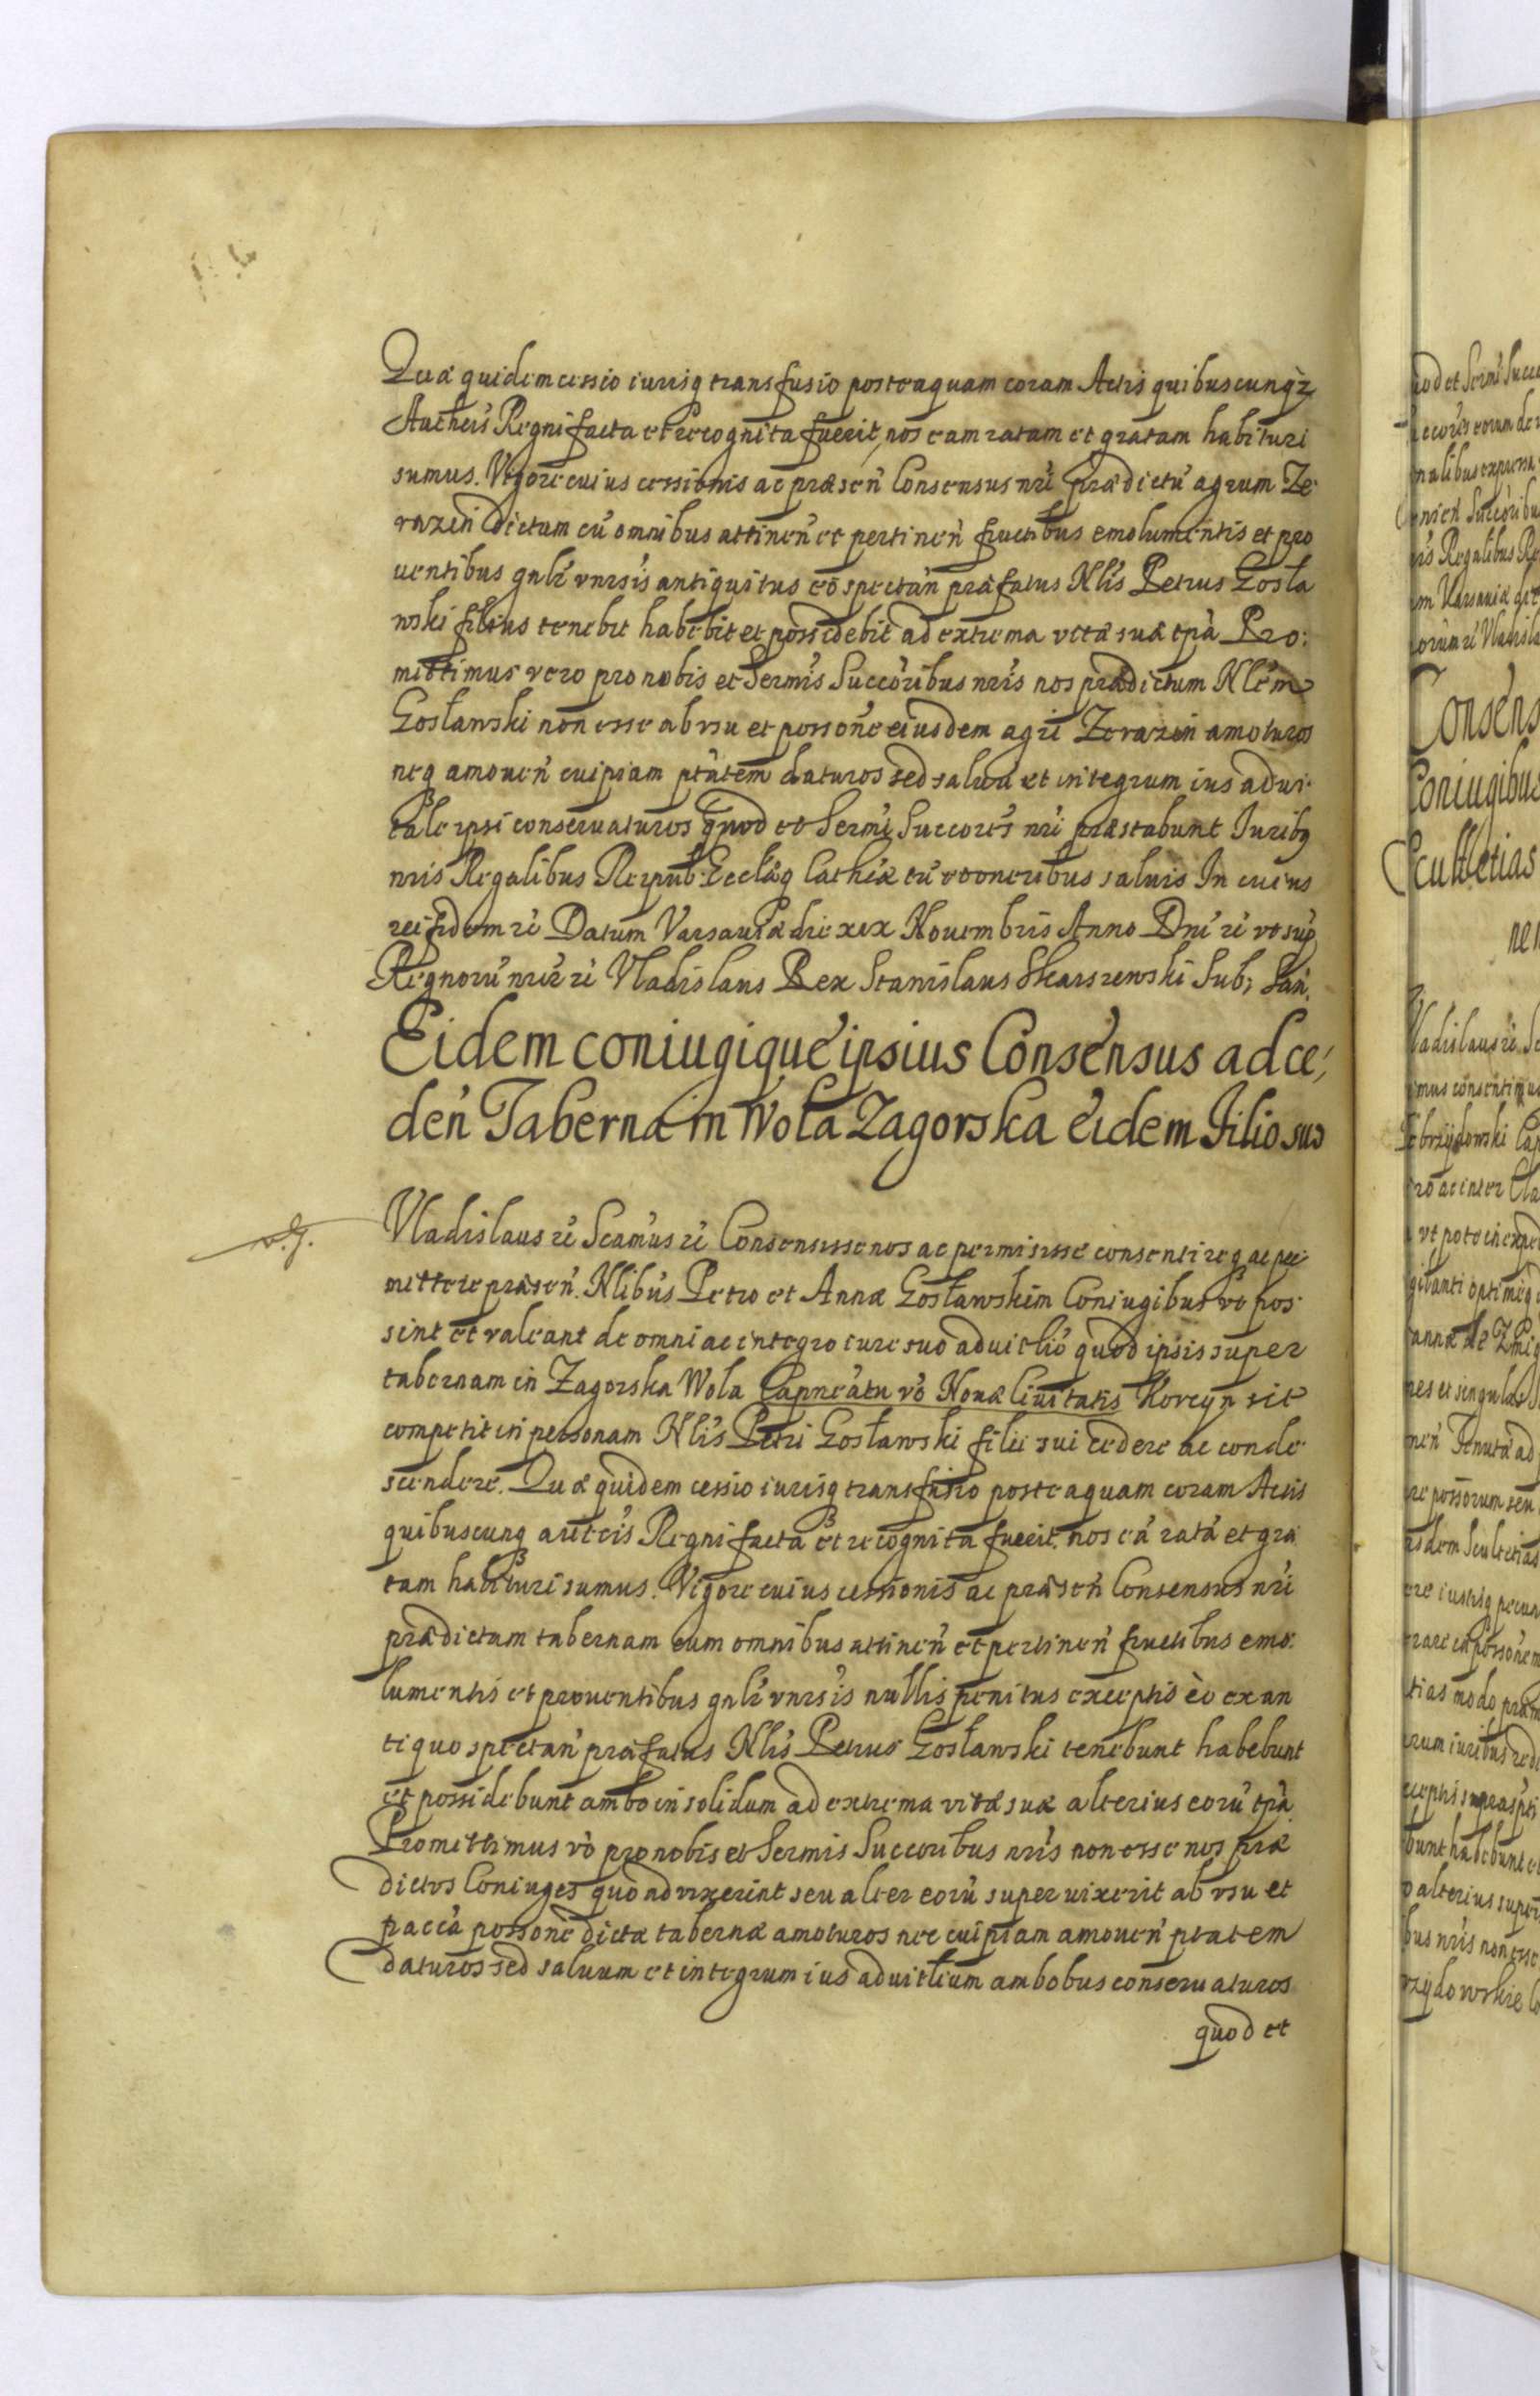 Quæ quidem cessio iurisq transfusio posteaquam coram Actis quibuscunqz
Authcis Regni facta et recognita fuerit, nos eam ratam et gratam habituri
sumus. Vigore cuius cessionis ac præsen̄ Consensus nri prædictū agrum Ze
razin dictum cū omnibus attinen̄ et pertinen̄ fructibus emolumentis et pro
uentibus gnlr vnrsis antiquitus eō spectan̄ præfatus Nlis Petrus Gosła
wski filius tenebit habebit et possidebit ad extrema vitæ suæ tpā Pro:
mittimus vero pro nobis et Sermis Succoribus nris nos prædictum Nlem
Gosławski non esse ab vsu et possone eiusdem agri Zerazin amoturos
neq amouen̄ cuipiam ptatem daturos sed saluū et integrum ius adui
tale ipsi conseruaturos quod et Sermi Succores nri præstabunt Juribq
nris Regalibus Reipub: Ecclæq Cathcæ tū et oneribus saluis In cuius
rei fidem rc Datum Varsauiæ die xix Nouembris Anno Dni rc vt sup
Regnorū nror rc Vladislaus Rex Stanislaus Skarszewski Sub: San.
Eidem coniugique ipsius Consensus ad ce,
den̄ Taberna in Wola Zagorska eidem Filio suo
Vladislaus rc Scamus rc Consensisse nos ac permisisse consentireq ac per
mittere præsen̄. Nlibus Petro et Annæ Gosławskim Coniugibus vt pos
sint et valeant de omni ac integro iure suo aduitlio quod ipsis super
tabernam in Zagorska Wola Capneatu vō Nouæ Ciuitatis Korcyn sit
competit in personam Nlis Petri Gosławski filii sui cedere ac conde
scendere. Quæ quidem cessio iurisq transfusio posteaquam coram Actis
quibuscunq autcis Regni facta et recognita fuerit. nos eā ratā et gra
tam habituri sumus. Vigore cuius cessionis ac præsen̄ Consensus nri
prædictam tabernam cum omnibus attinen̄ et pertinen̄ fructibus emo
lumentis et prouentibus gnlr vnrsis nullis penitus exceptis eō ex an
tiquo spectan̄ præfatus Nlis Petrus Gosławski tenebunt habebunt
et possidebunt ambo in solidum ad extrema vitæ suæ alterius eorū tpā
Promittimus vō pro nobis et Sermis Succoribus nris non esse nos præ
dictos Coniuges quoad vixerint seu alter eorū superuixerit ab vsu et
paccā possone dictæ tabernæ amoturos nec cuipiam amouen̄ ptatem
daturos sed saluum et integrum ius aduitlium ambobus conseruaturos
quod et